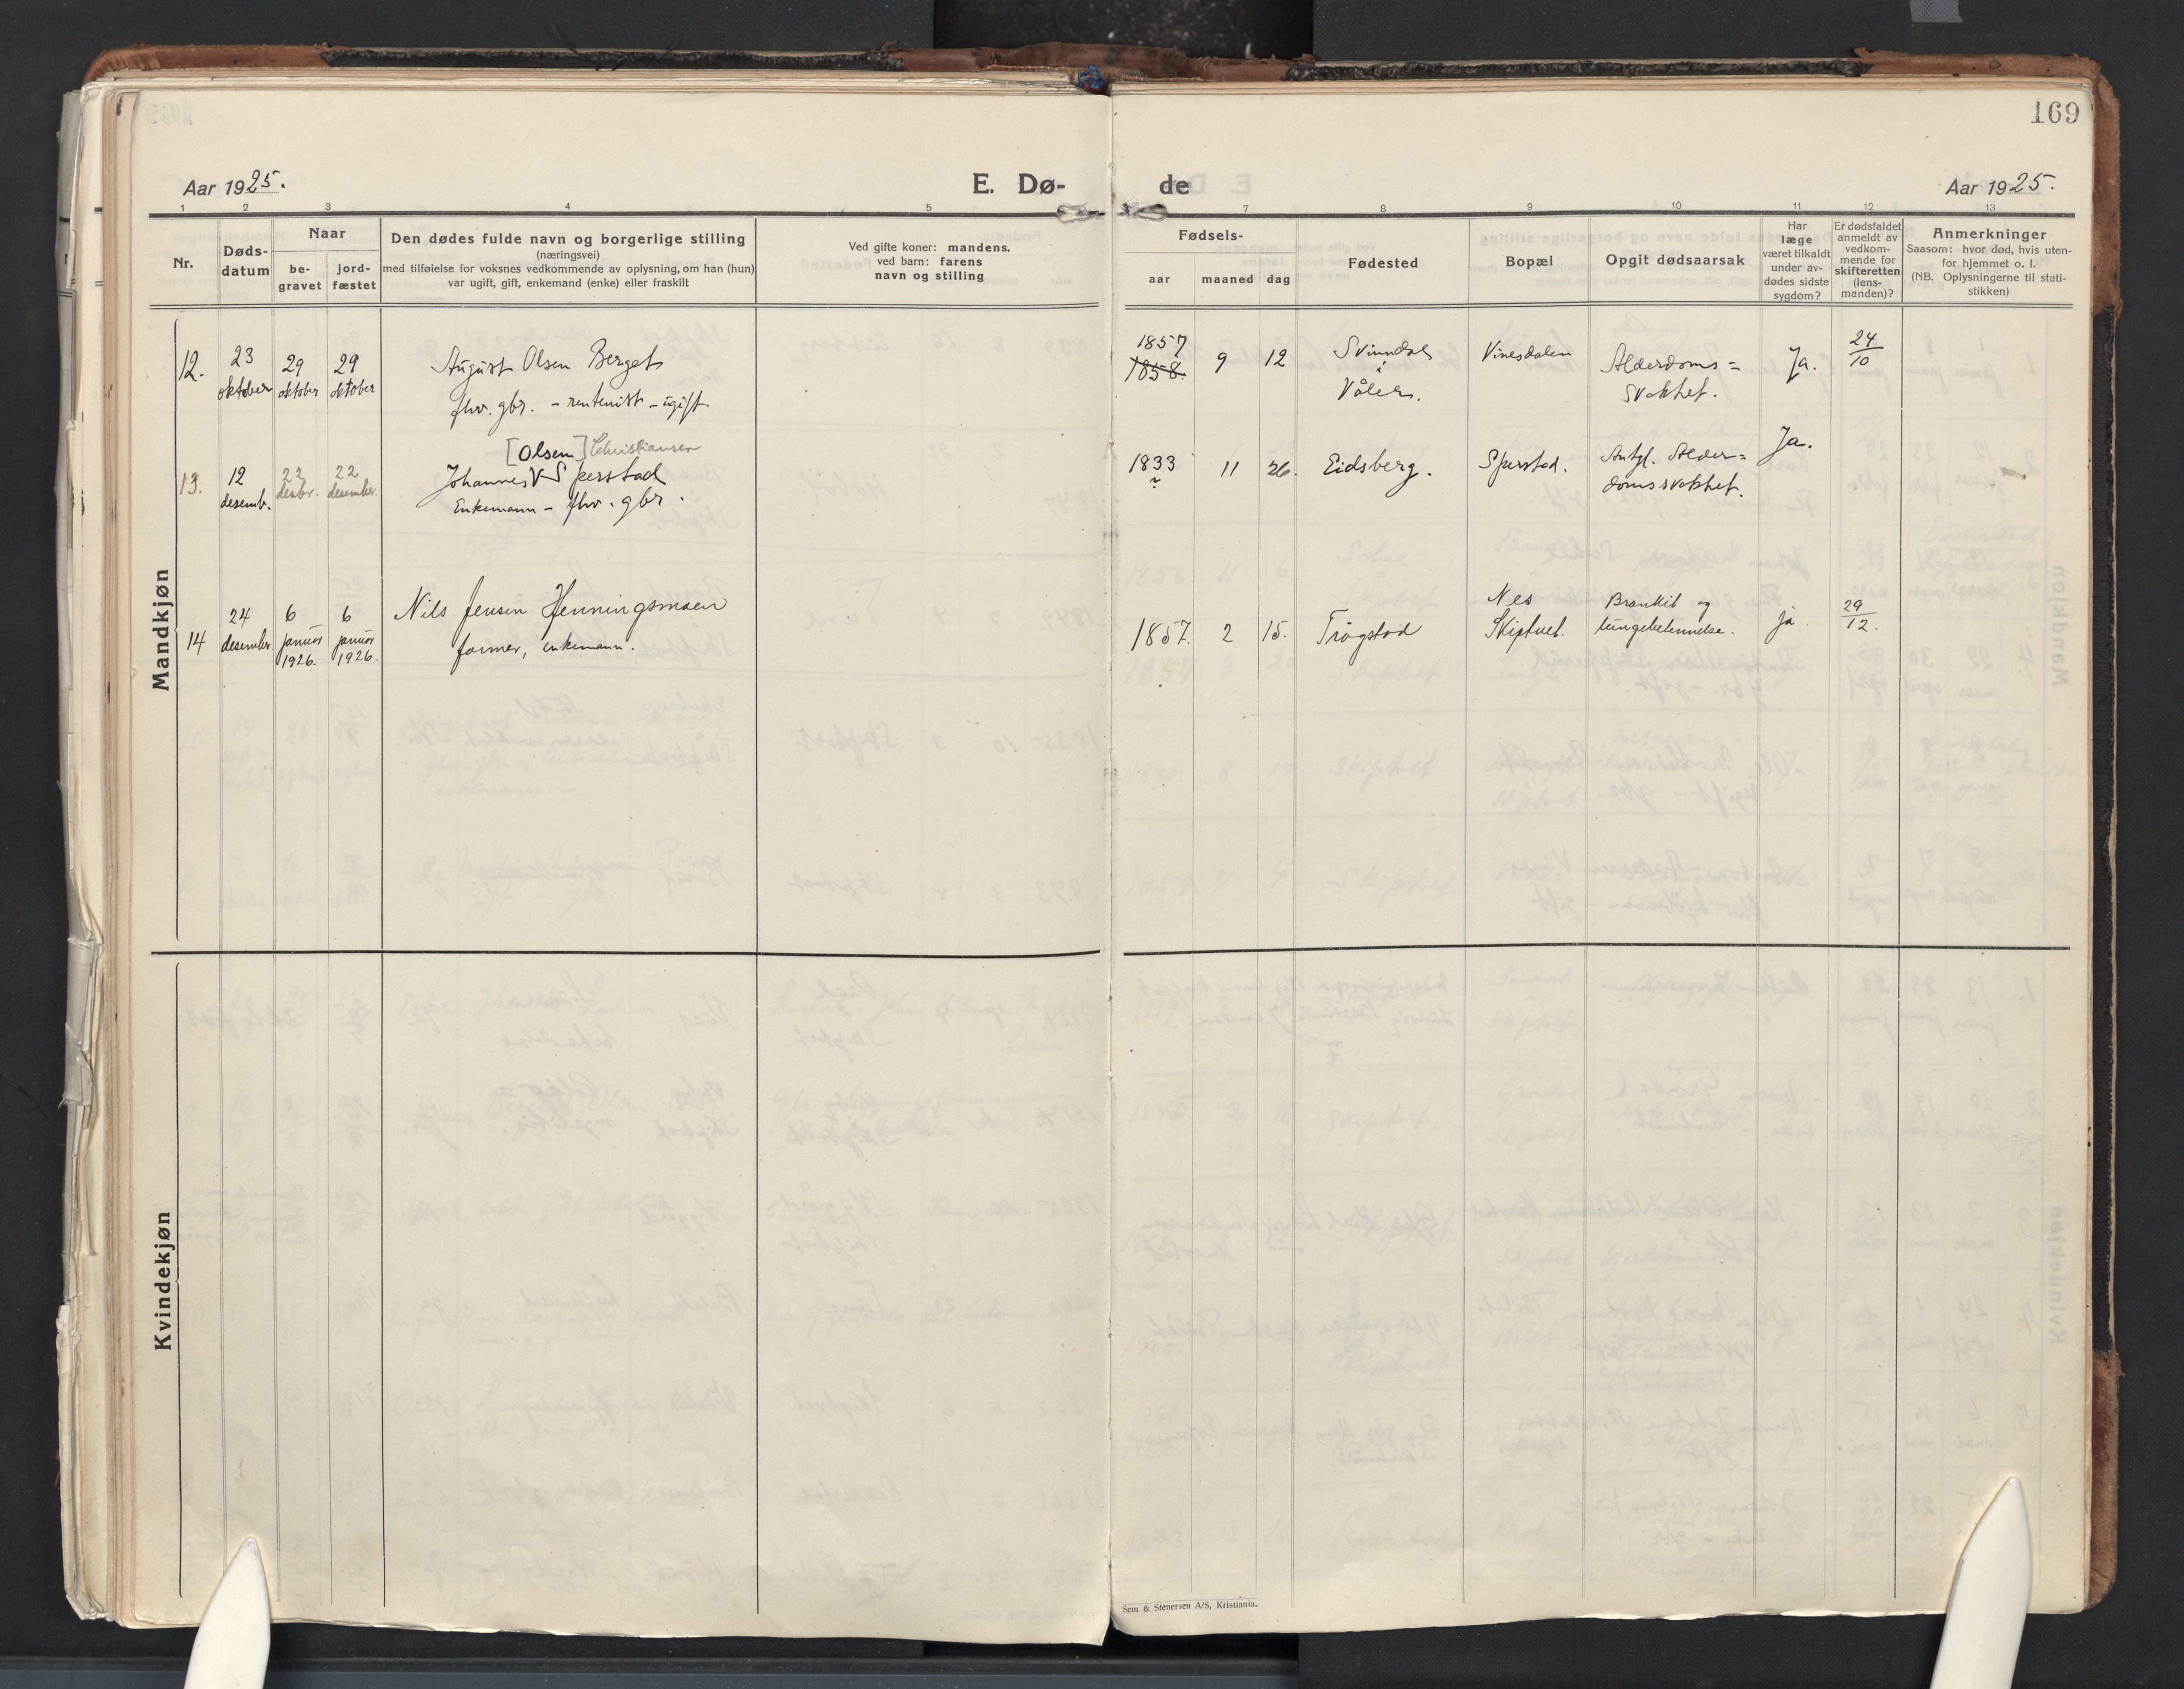 169
Aar 1925.
E. Dø-
de
Aar 1925.
1 2 3 4 5 7 8 9 10 11 12 13
Nr.
Døds-
datum
Naar
be-
gravet
jord-
fæstet
Den dødes fulde navn og borgerlige stilling
(næringsvei)
med tilføielse for voksnes vedkommende av oplysning, om han (hun)
var ugift, gift, enkemand (enke) eller fraskilt
Ved gifte koner: mandens,
ved barn: farens
navn og stilling
Fødsels-
aar maaned dag
Fødested
Bopæl
Opgit dødsaarsak
Har
læge
været tilkaldt
under av-
dødes sidste
sygdom?
Er dødsfaldet
anmeldt av
vedkom-
mende for
skifteretten
(lens-
manden)?
Anmerkninger
Saasom: hvor død, hvis uten-
for hjemmet o. l.
(NB. Oplysningerne til stati-
stikken)
Mandkjøn
12.
23
oktober
29
oktober
29
oktober
August Olsen Berget
fhv. gbr. - rentenist - ugift.
1857
1858.
9
12
Svinndal
i
Våler.
Vinesdalen
Alderdoms=
svakhet.
Ja.
24
10
13.
12
desemb.
22
desbr.
22
desember
[Olsen] Christiansen
Johannes V Sperstad
Enkemann - fhv. gbr.
1833
11
26.
Eidsberg.
Sperstad.
Antgl. Alder=
domssvakhet.
Ja.
14
24
desember
6
januar
1926.
6
januar
1926.
Nils Jensen Henningsmoen
farmer, enkemann.
1857.
2
15.
Trøgstad
Nes
Skiptvet.
Bronkit og
lungebetennelse.
ja
29
12.
Kvindekjøn
Sem & Stenersen A/S, Kristiania.